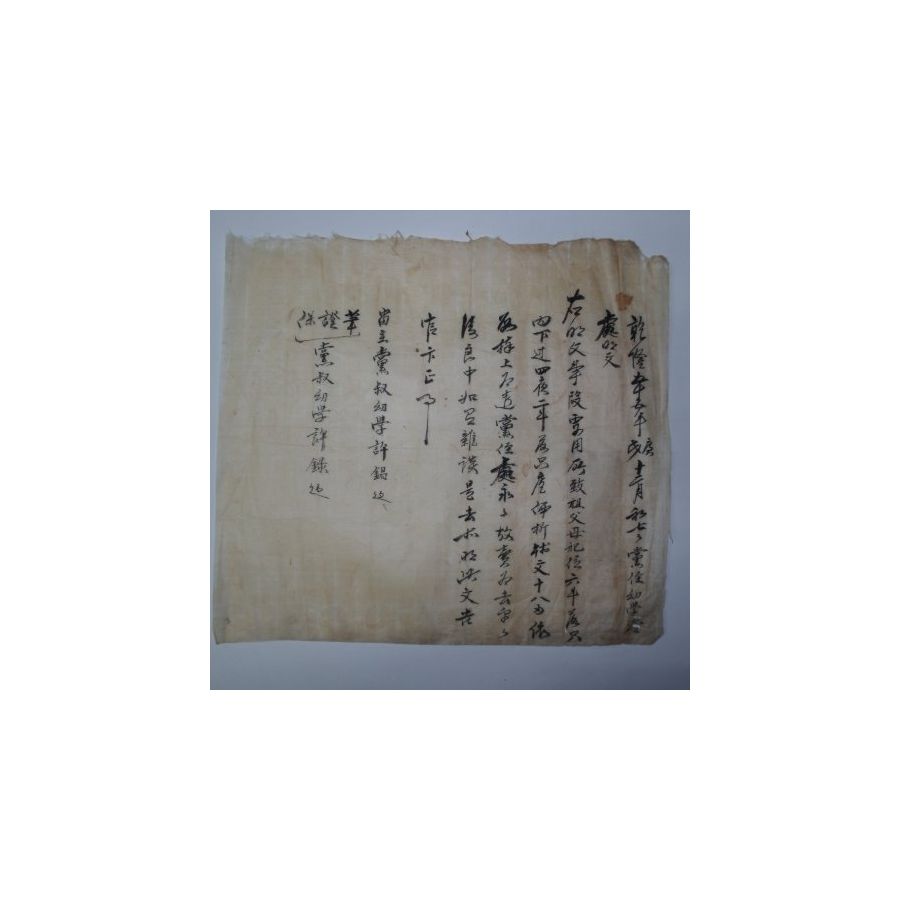 乾隆 年庚戌十二月初七日黨侄幼學
處明文
右明文事段要用所致祖父母祀位六斗落只
內下邊四夜二斗落只廋 折錢文十八兩依
數捧上爲遣黨侄處永永放賣爲去乎
後良中如有雜談是去等將此文告
官卞正事
畓主黨叔幼學許錫
筆
證
保 黨叔幼學許錄